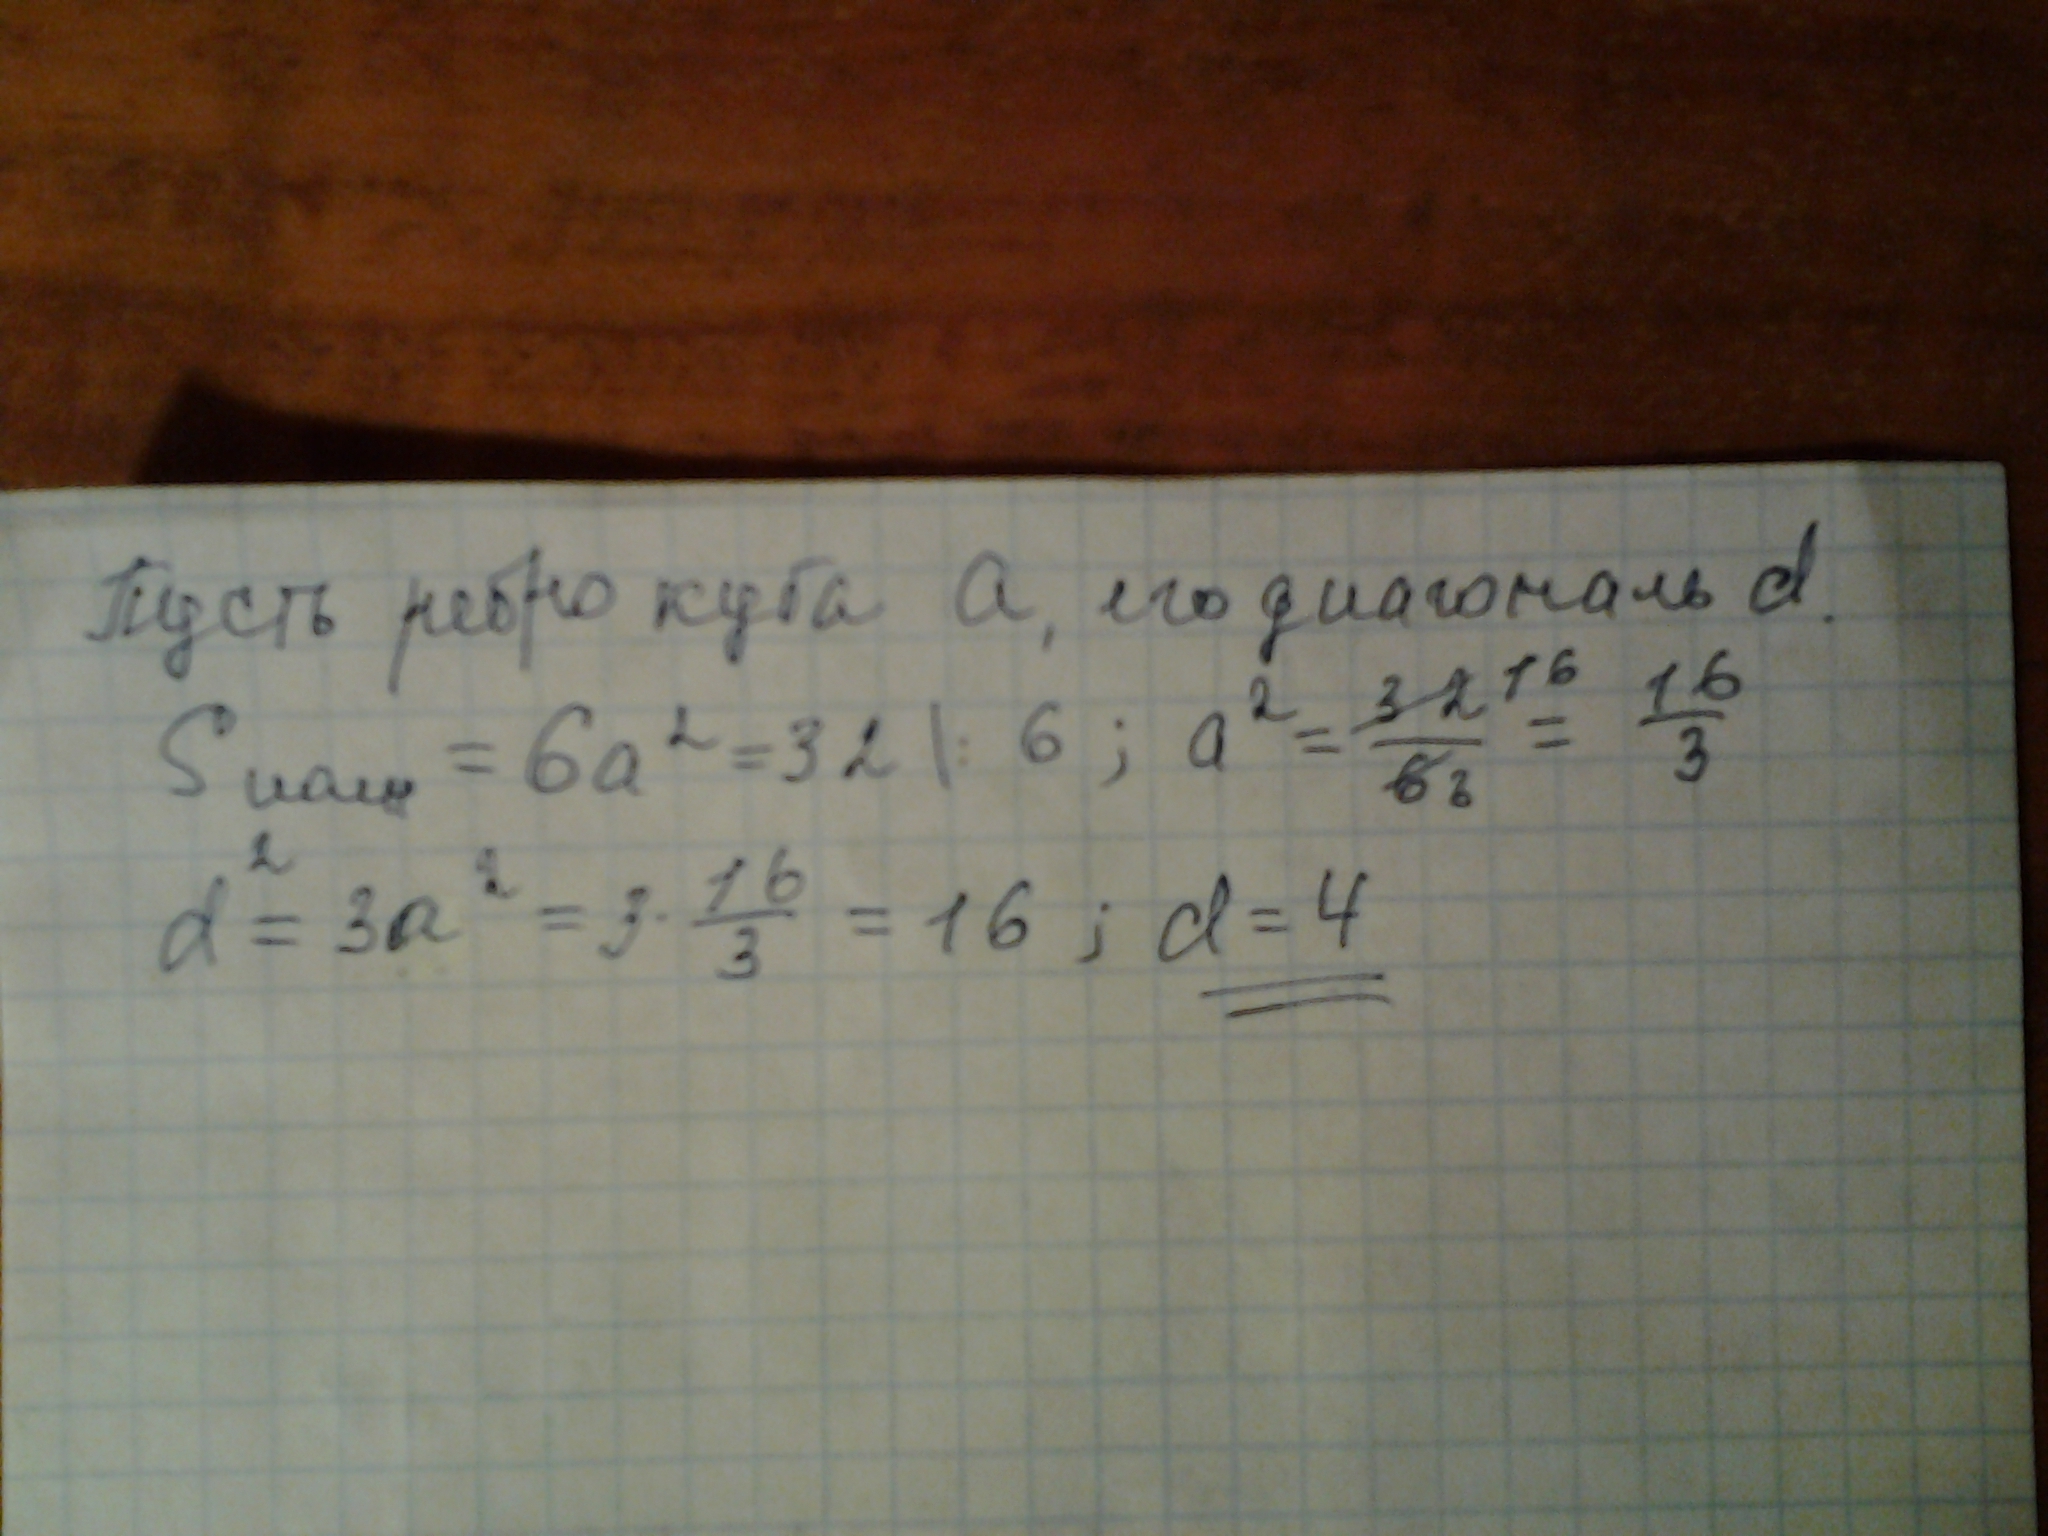 Пусть ребро куба a, его диагональ d.
Sполн = 6a² = 32 |: 6 ; a² = 32 16 / 6 3 = 16/3
d² = 3a² = 3 · 16/3 = 16 ; d = 4